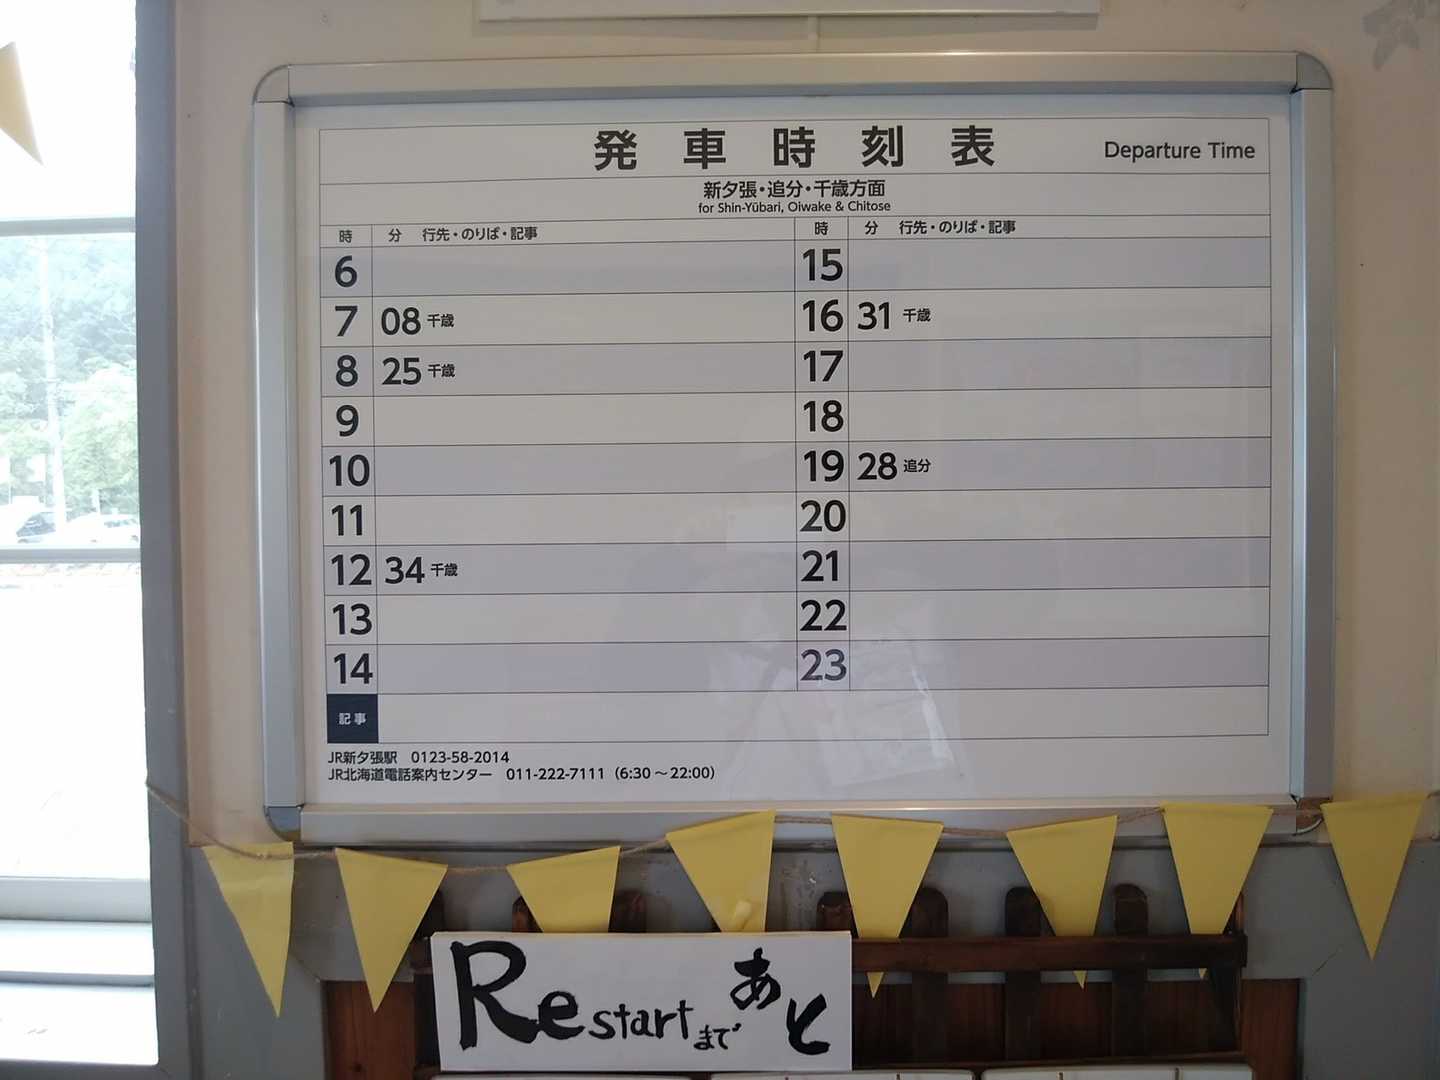 発車時刻表 Departure Time
新夕張・追分・千歳方面
for Shin-Yūbari, Oiwake & Chitose
時 分 行先・のりば・記事
6
7 08 千歳
8 25 千歳
9
10
11
12 34 千歳
13
14
記事
時 分 行先・のりば・記事
15
16 31 千歳
17
18
19 28 追分
20
21
22
23
JR新夕張駅 0123-58-2014
JR北海道電話案内センター 011-222-7111（6:30～22:00）
Restartまで あと